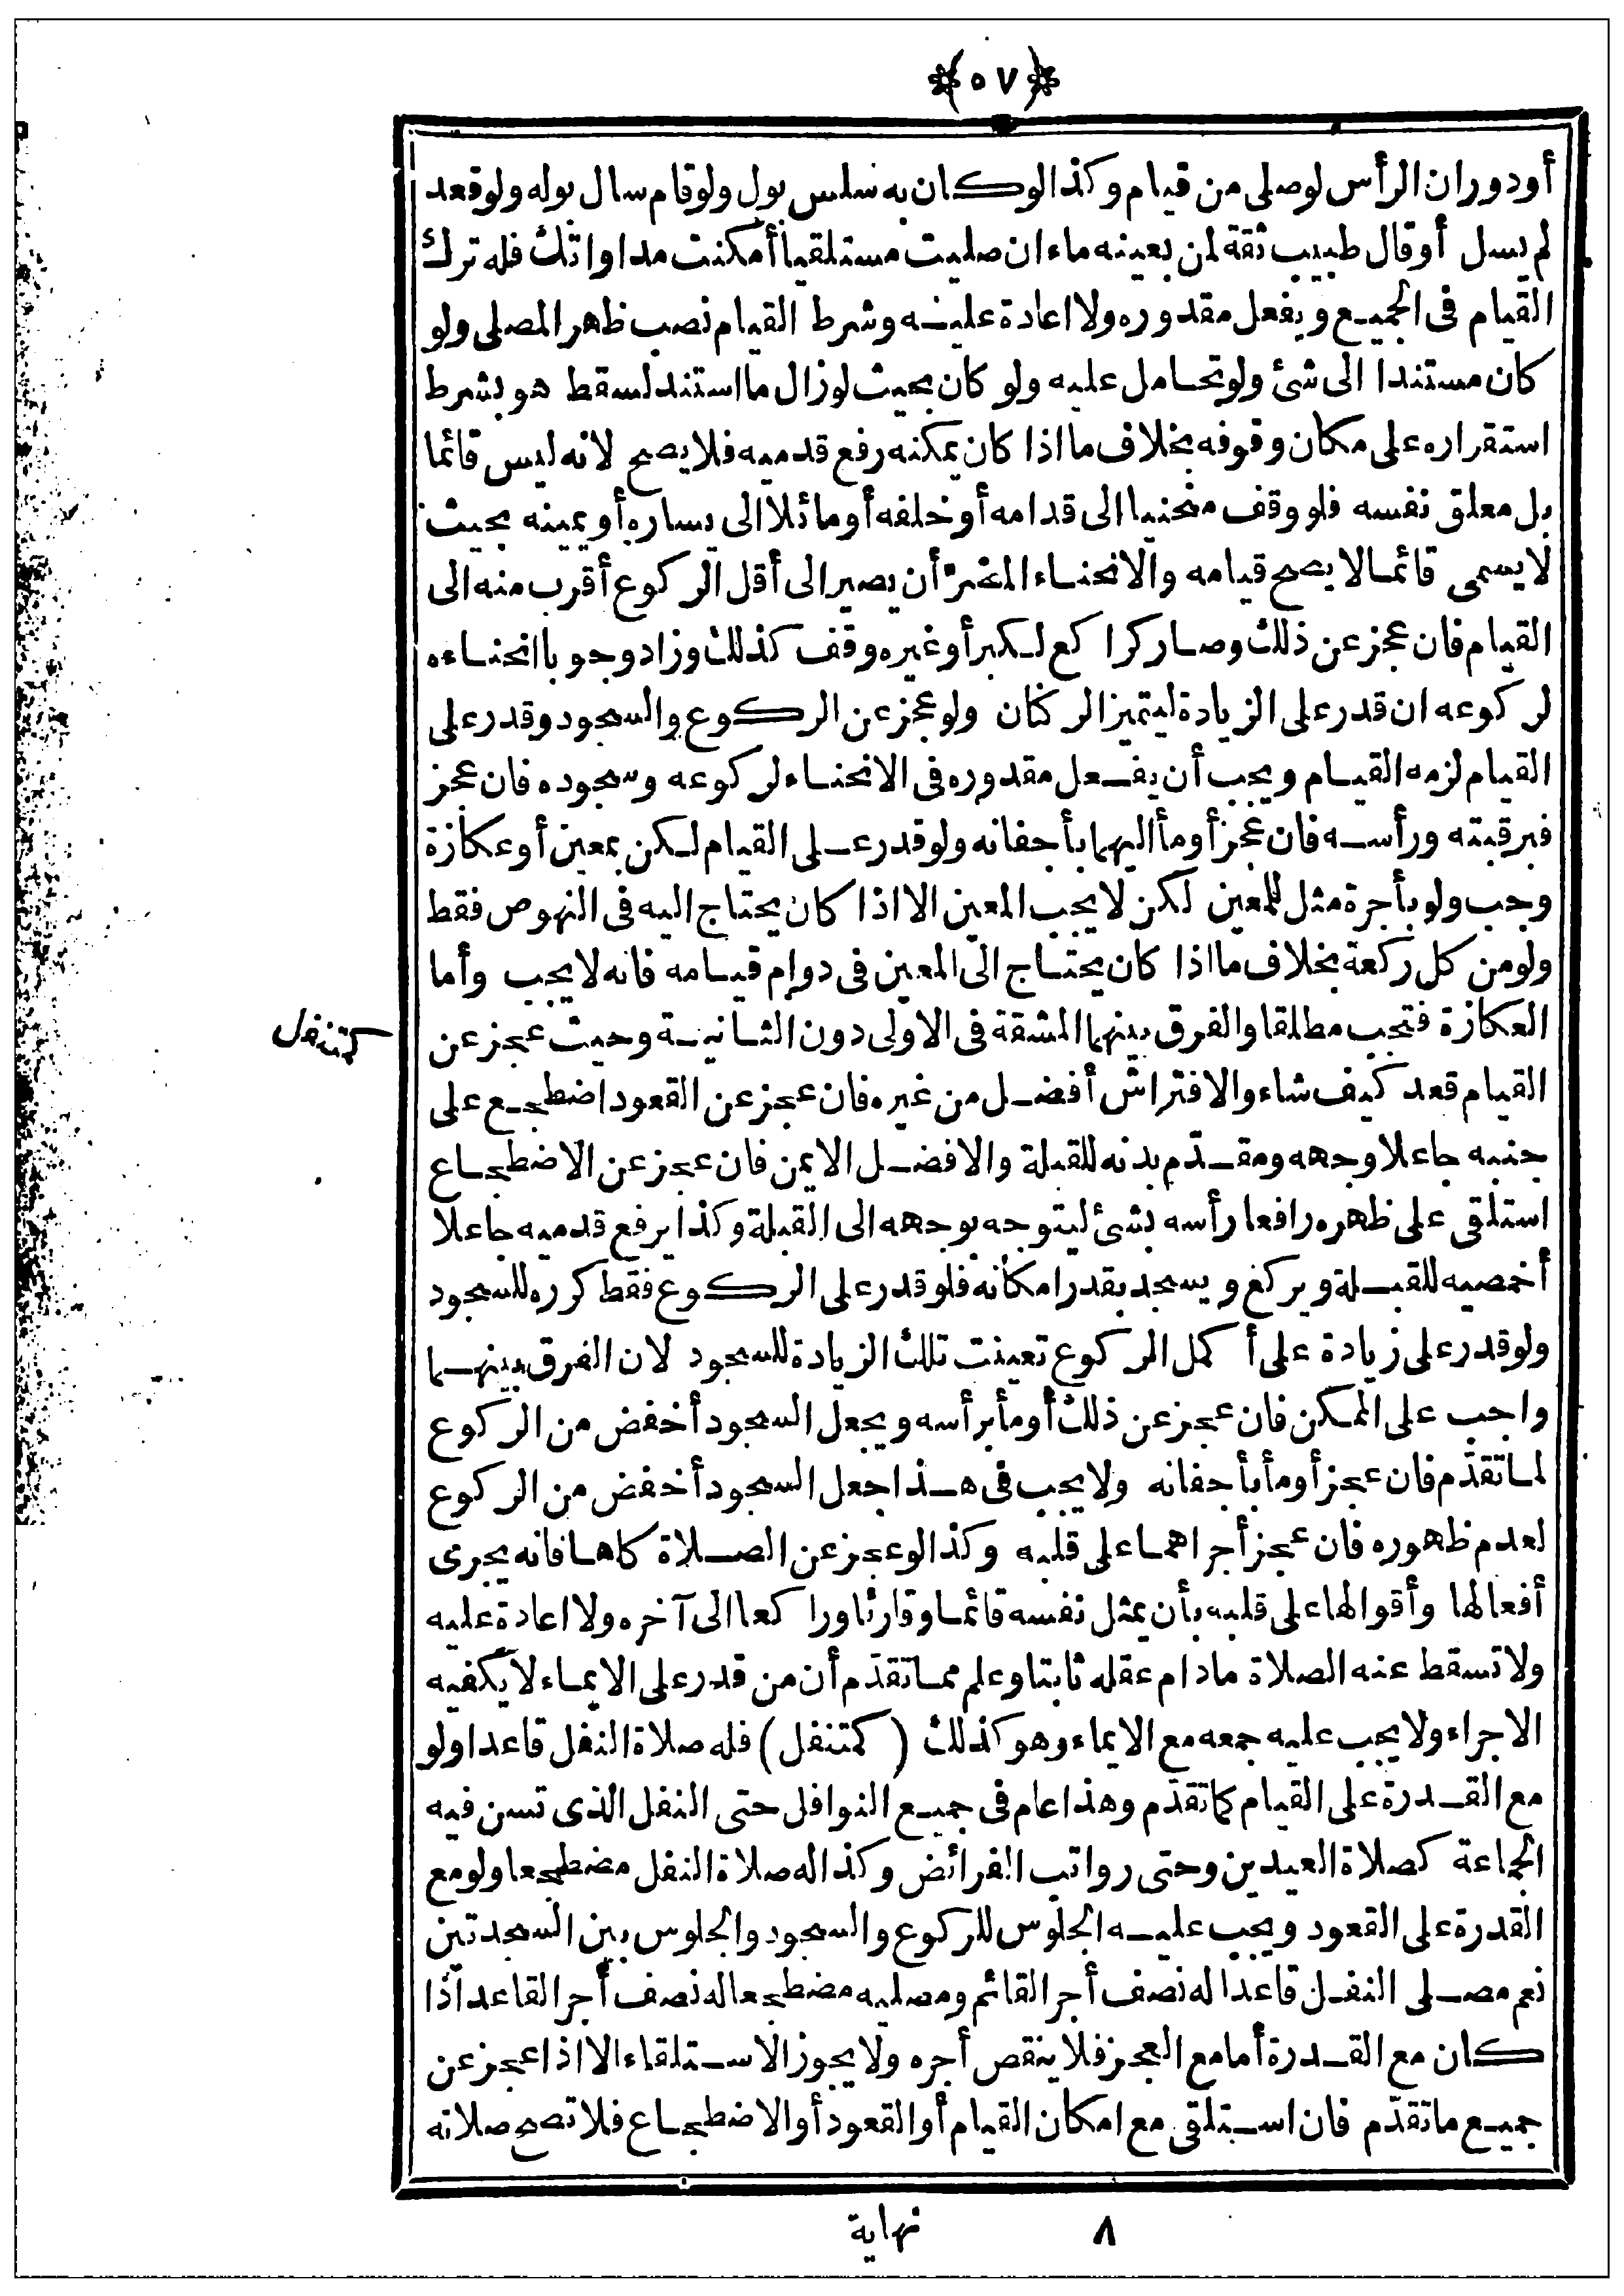 ﴿٥٧﴾
أودوران الرأس لوصلى من قيام وكذا لو كان به سلس بول ولو قام سال بوله ولو قعد
لم يسل أوقال طبيب ثقة لمن بعينه ماء ان صليت مستلقيا أمكنت مداواتك فله ترك
القيام فى الجميع ويفعل مقدوره ولا اعادة عليه وشرط القيام نصب ظهر المصلى ولو
كان مستندا الى شئ ولو تحامل عليه ولو كان بحيث لوزال ما استند لسقط هو بشرط
استقراره على مكان وقوفه بخلاف ما اذا كان يمكنه رفع قدميه فلا يصح لانه ليس قائما
بل معلق نفسه فلو وقف منحنيا الى قدامه أو خلفه أو مائلا الى يساره أو يمينه بحيث
لا يسمى قائما لا يصح قيامه والانحناء المضر أن يصير الى أقل الركوع أقرب منه الى
القيام فان عجز عن ذلك وصار كراكع لكبر أو غيره وقف كذلك وزاد وجوبا انحناءه
لركوعه ان قدر على الزيادة ليتميز الركنان ولو عجز عن الركوع والسجود وقدر على
القيام لزمه القيام ويجب أن يفعل مقدوره فى الانحناء لركوعه وسجوده فان عجز
فبرقبته ورأسه فان عجز أومأ اليهما بأجفانه ولو قدر على القيام لكن بمعين أو عكازة
وجب ولو بأجرة مثل للمعين لكن لا يجب المعين الا اذا كان يحتاج اليه فى النهوض فقط
ولو من كل ركعة بخلاف ما اذا كان يحتاج الى المعين فى دوام قيامه فانه لا يجب وأما
العكازة فتجب مطلقا والفرق بينهما المشقة فى الاولى دون الثانية وحيث عجز عن
كمتنفل
القيام قعد كيف شاء والافتراش أفضل من غيره فان عجز عن القعود اضطجع على
جنبه جاعلا وجهه ومقدّم بدنه للقبلة والافضل الايمن فان عجز عن الاضطجاع
استلقى على ظهره رافعا رأسه بشئ ليتوجه بوجهه الى القبلة وكذا يرفع قدميه جاعلا
أخمصيه للقبلة ويركع ويسجد بقدر امكانه فلو قدر على الركوع فقط كرره للسجود
ولو قدر على زيادة على أكمل الركوع تعينت تلك الزيادة للسجود لان الفرق بينهما
واجب على الممكن فان عجز عن ذلك أومأ برأسه ويجعل السجود أخفض من الركوع
لما تقدّم فان عجز أومأ بأجفانه ولا يجب فى هذا جعل السجود أخفض من الركوع
لعدم ظهوره فان عجز أجراهما على قلبه وكذا لو عجز عن الصلاة كاها فانه يجرى
أفعالها وأقوالها على قلبه بأن يمثل نفسه قائما وقارئا وراكعا الى آخره ولا اعادة عليه
ولا تسقط عنه الصلاة مادام عقله ثابتا وعلم مما تقدّم أن من قدر على الايماء لا يكفيه
الاجراء ولا يجب عليه جمعه مع الايماء وهو كذلك (كمتنفل) فله صلاة النفل قاعدا ولو
مع القدرة على القيام كما تقدّم وهذا عام فى جميع النوافل حتى النفل الذى تسن فيه
الجماعة كصلاة العيدين وحتى رواتب الفرائض وكذا له صلاة النفل مضطجعا ولو مع
القدرة على القعود ويجب عليه الجلوس للركوع والسجود والجلوس بين السجدتين
نعم مصلى النفل قاعدا له نصف أجر القائم ومصليه مضطجعا له نصف أجر القاعد اذا
كان مع القدرة أما مع العجز فلا ينقص أجره ولا يجوز الاستلقاء الا اذا عجز عن
جميع ما تقدّم فان استلقى مع امكان القيام أو القعود أو الاضطجاع فلا تصح صلاته
٨ نهاية